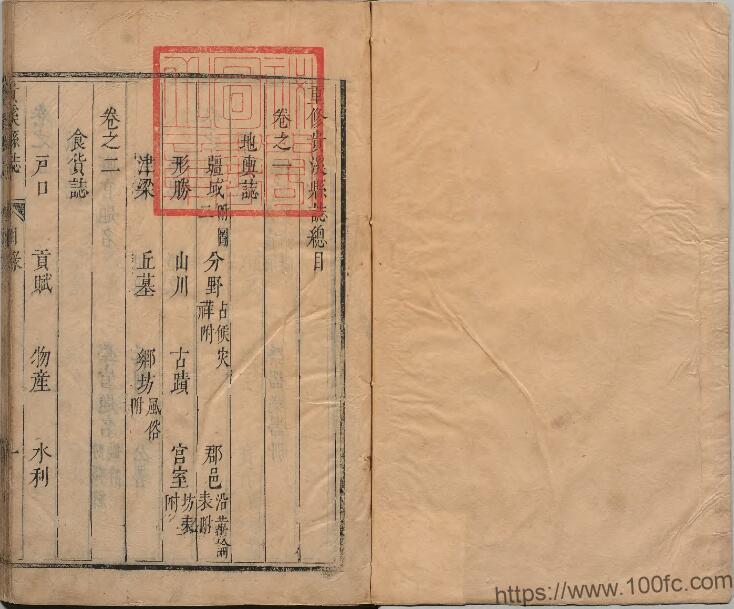 重修貴溪縣誌總目
卷之一
地輿誌
疆域附圖二 分野占候灾祥附 郡邑沿革論表附
形勝 山川 古蹟 宫室坊表附
津梁 丘墓 鄉坊風俗附
卷之二
食貨誌
戶口 貢賦 物産 水利
貴溪縣誌 目錄 一
https://www.100fc.com